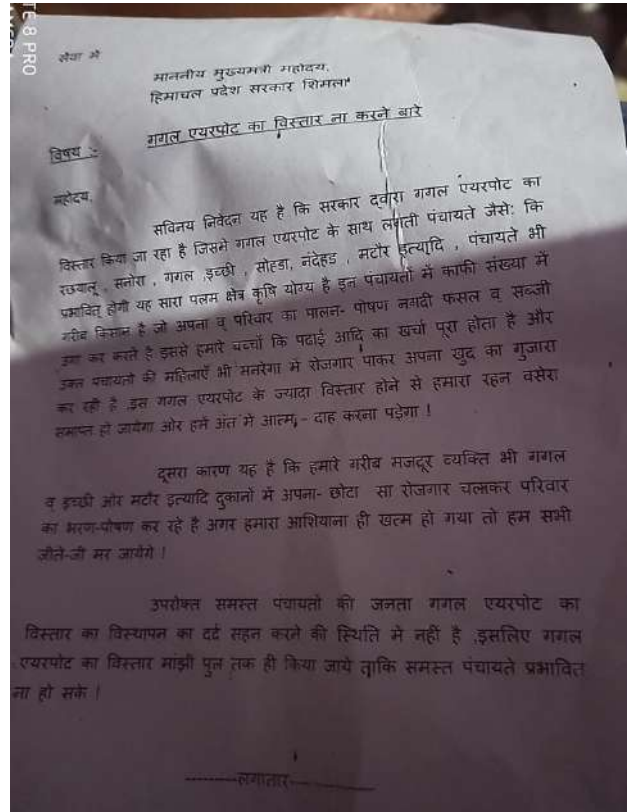 TE 8 PRO
सेवा में
माननीय मुख्यमंत्री महोदय,
हिमाचल प्रदेश सरकार शिमला
विषय :- गगल एयरपोट का विस्तार ना करने बारे
महोदय,
सविनय निवेदन यह है कि सरकार द्वारा गगल एयरपोट का
विस्तार किया जा रहा है जिसमे गगल एयरपोट के साथ लगती पंचायते जैसे: कि
रछयालू , सनोरा , गगल ,इच्छी , सोहडा, नंदेहड , मटौर इत्यादि , पंचायते भी
प्रभावित होगी यह सारा पलम क्षेत्र कृषि योग्य है इन पंचायतों में काफी संख्या में
गरीब किसान है जो अपना व् परिवार का पालन- पोषण नगदी फसल व सब्जी
उगा कर करते है इससे हमारे बच्चों कि पढाई आदि का खर्चा पूरा होता है और
उक्त पंचायतो की महिलाएँ भी मनरेगा में रोजगार पाकर अपना खुद का गुजारा
कर रही है .इस गगल एयरपोट के ज्यादा विस्तार होने से हमारा रहन वसेरा
समाप्त हो जायेगा ओर हमें अंत में आत्म - दाह करना पड़ेगा !
दूसरा कारण यह है कि हमारे गरीब मजदूर व्यक्ति भी गगल
व इच्छी और मटौर इत्यादि दुकानों में अपना- छोटा सा रोजगार चलाकर परिवार
का भरण-पोषण कर रहे है अगर हमारा आशियाना ही खत्म हो गया तो हम सभी
जीते-जी मर जायेंगे !
उपरोक्त समस्त पंचायतो की जनता गगल एयरपोट का
विस्तार का विस्थापन का दर्द सहन करने की स्थिति में नहीं है .इसलिए गगल
एयरपोट का विस्तार मांझी पुल तक ही किया जाये ताकि समस्त पंचायते प्रभावित
ना हो सके !
---------लगातार---------